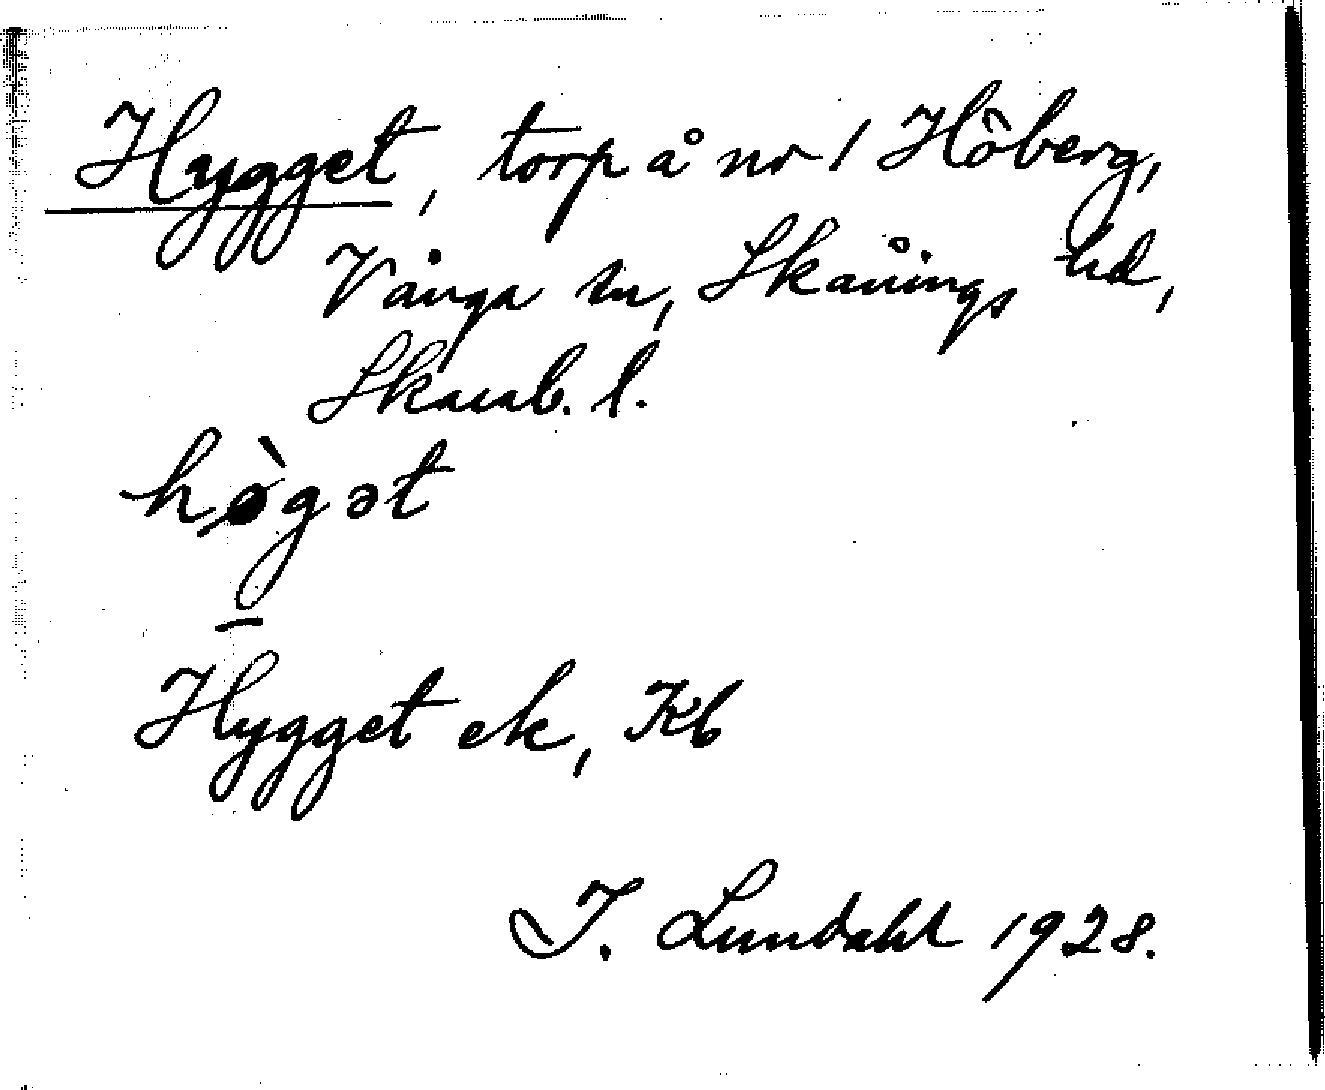 Hygget, torp å nr 1 Höberg,
Vånga sn, Skånings hd,
Skarab. l.
hògət
Hygget ek, Kb
I. Lundahl 1928.